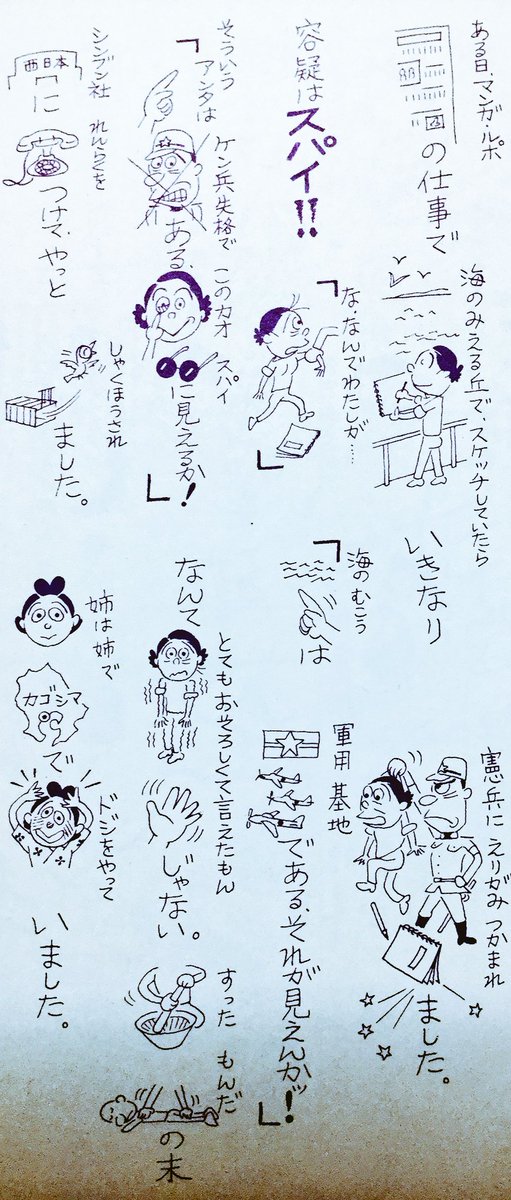 ある日、マンガ・ルポ の仕事で 海のみえる丘で、スケッチしていたら いきなり 憲兵に えりがみ つかまれ ました。
容疑は スパイ!! 「な・なんでわたしが……」 「海のむこう は 軍用 基地 である、それが見えんかッ!」
そういう 「アンタは ケン兵失格で ある、このカオ スパイ に見えるか!」 なんて とてもおそろしくて言えたもん じゃない。 すった もんだ の末
シンブン社 西日本 に れんらくを つけて、やっと しゃくほうされ ました。 姉は姉で カゴシマ で ドジをやって いました。